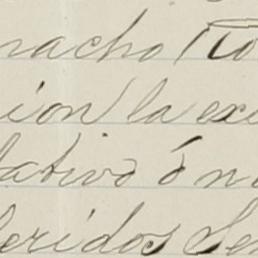 nacho
ion la exi
lativo ó n
feridos Se